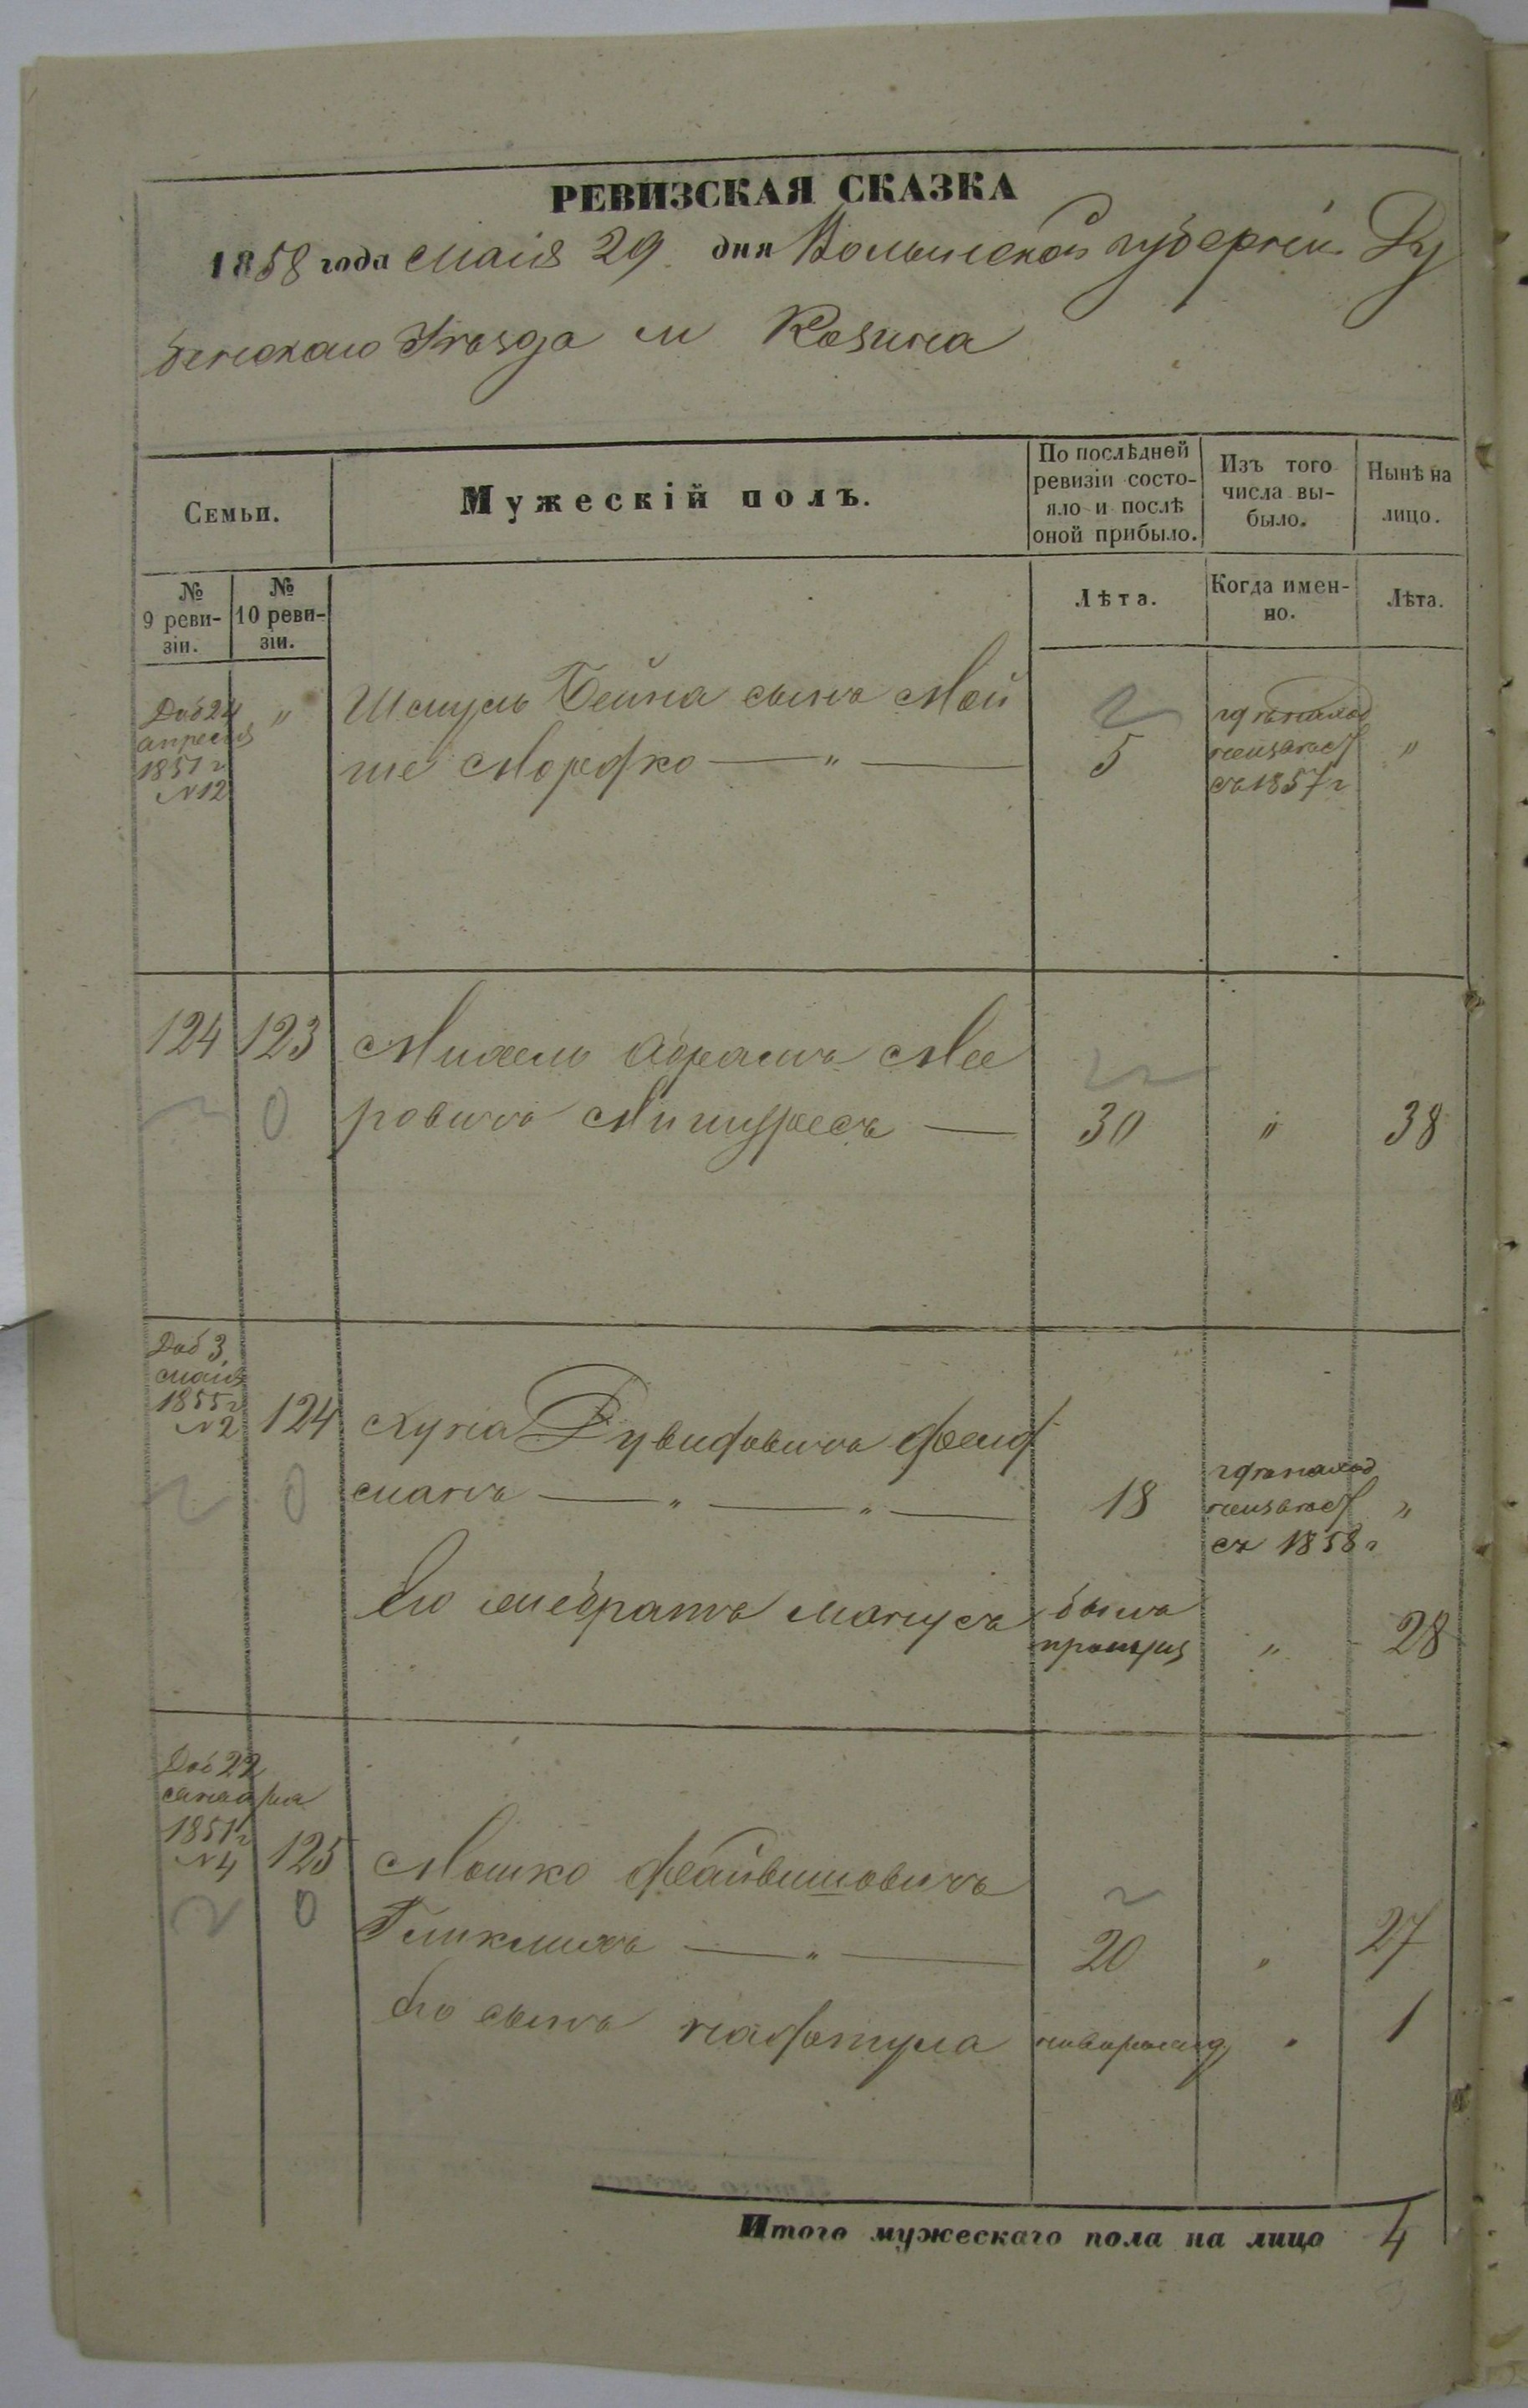 РЕВИЗСКАЯ СКАЗКА
1858 года Маія 29 дня Волынской губерніи Ду
бенскаго Уѣзда м Козина
Семьи.
Мужескій полъ.
По послѣдней ревизіи состо-
яло и послѣ
оной прибыло.
Изъ того
числа вы-
было.
Нынѣ на
лицо.
№
9 реви-
зіи.
№
10 реви-
зіи.
Лѣта.
Когда имен-
но.
Лѣта.
Доб 24
апреля
1851 г
№ 12
"
Шмуль Бейна сынъ Мой
ше Мордко — " —
5
гдѣ наход
неизвѣст
съ 1857 г
"
124 123 Михель Абрамъ Мее
ровичъ — 30 " 38
Доб 3
маія
1855 г
№ 2
124
Хуна Рувиновичъ
манъ — " — " —
18
гдѣ наход
неизвѣст
съ 1858 г
"
Его братъ Манусъ
былъ
"
28
Доб 22
1851 г
№ 4
125
Мошко Файвишовичъ
— " — 20 " 27
Его сынъ новорожд " 1
Итого мужескаго пола на лицо 4